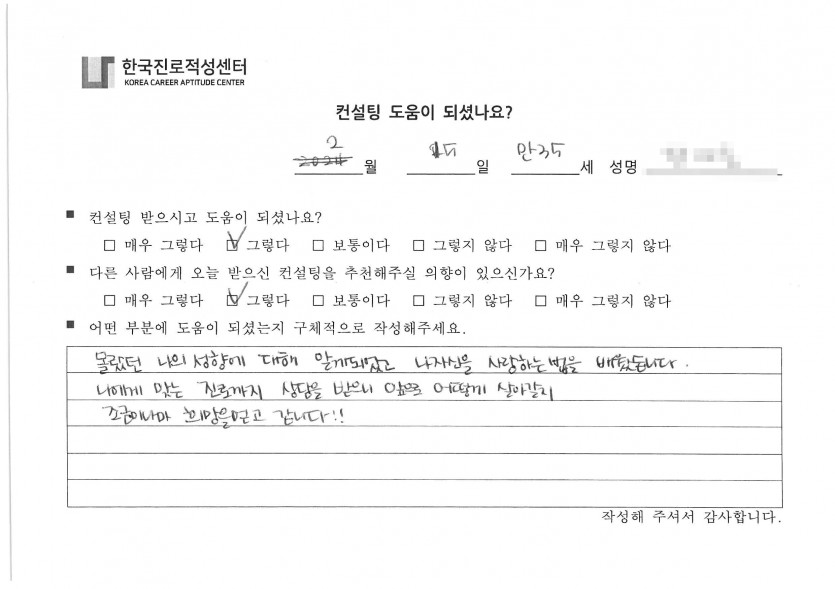 한국진로적성센터
KOREA CAREER APTITUDE CENTER
컨설팅 도움이 되셨나요?
2
2024 월 15 일 만35 세 성명
■ 컨설팅 받으시고 도움이 되셨나요?
□ 매우 그렇다 ☑ 그렇다 □ 보통이다 □ 그렇지 않다 □ 매우 그렇지 않다
■ 다른 사람에게 오늘 받으신 컨설팅을 추천해주실 의향이 있으신가요?
□ 매우 그렇다 ☑ 그렇다 □ 보통이다 □ 그렇지 않다 □ 매우 그렇지 않다
■ 어떤 부분에 도움이 되셨는지 구체적으로 작성해주세요.
몰랐던 나의 성향에 대해 알게되었고 나자신을 사랑하는 법을 배웠습니다.
나에게 맞는 진로까지 상담을 받으니 앞으로 어떻게 살아갈지
조금이나마 희망을얻고 갑니다!!
작성해 주셔서 감사합니다.